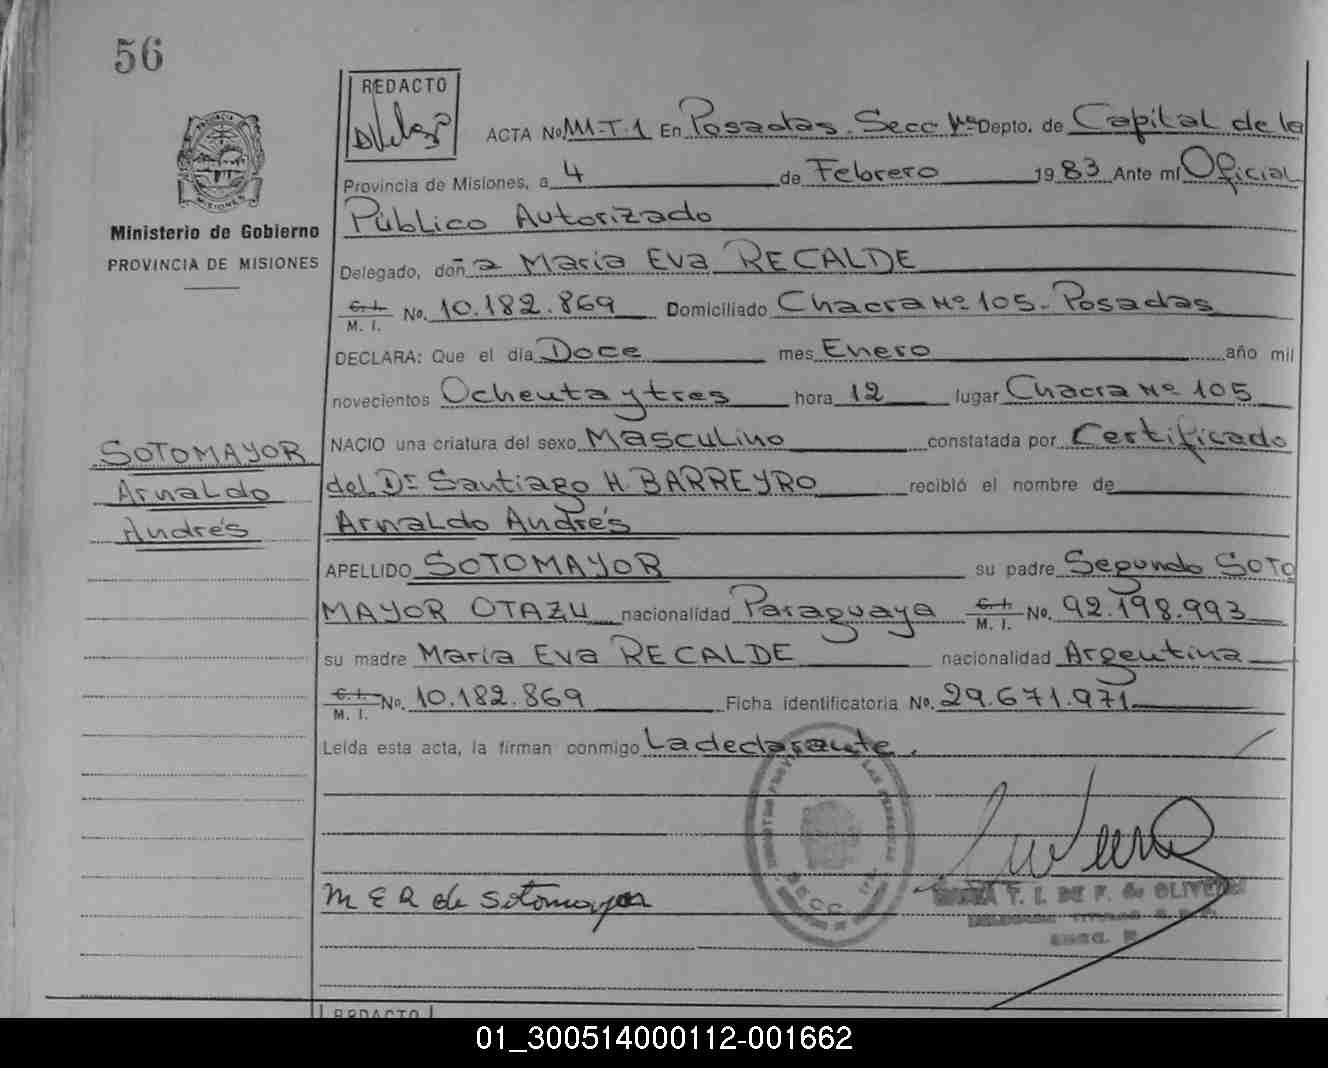 56
REDACTO
ACTA No. 111-T.1 En Posadas. Secc 1ra Depto. de Capital de la
Provincia de Misiones, a 4 de Febrero 1983 Ante mí Oficial
Público Autorizado
Ministerio de Gobierno
PROVINCIA DE MISIONES
Delegado, doña Maria Eva RECALDE
C. I.
M. I. No. 10.182.869 Domiciliado Chacra Nº 105 - Posadas
DECLARA: Que el día Doce mes Enero año mil
novecientos Ochenta y tres hora 12 lugar Chacra Nº 105
NACIO una criatura del sexo Masculino constatada por Certificado
del Dr Santiago H. BARREYRO recibió el nombre de
Arnaldo Andrés
SOTOMAYOR
Arnaldo
Andrés
APELLIDO SOTOMAYOR su padre Segundo SOTO
MAYOR OTAZU nacionalidad Paraguaya C. I. M. I. No. 92.198.993
su madre Maria Eva RECALDE nacionalidad Argentina
C. I.
M. I. No. 10.182.869 Ficha identificatoria No. 29.671.971
Leída esta acta, la firman conmigo La declarante.
M E R de Sotomayor
MARIA T. I. DE F. de OLIVEIRA
REDACTO
01_300514000112-001662